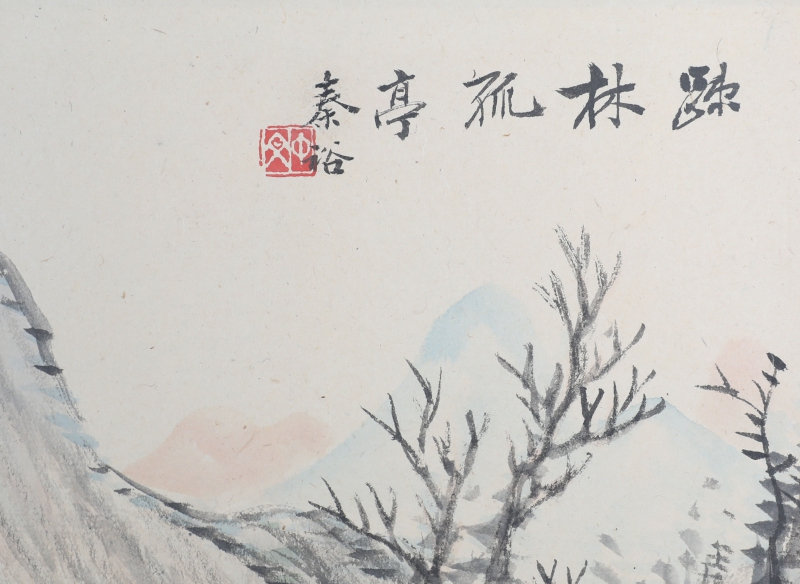 踈林孤亭
秦裕